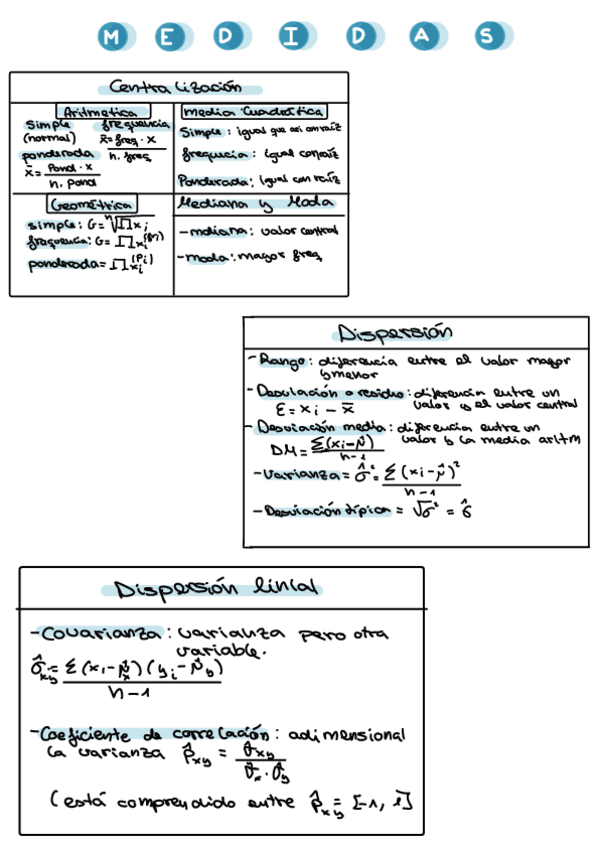 MEDIDAS
Centralización
Aritmetica
Simple frequencia
(normal) x̄ = freq · x / n. freq
ponderada
x̄ = Pond · x / n. pond
Media Cuadrática
Simple: igual que asi con raíz
frequcia: igual con raíz
Ponderada: igual con raíz
Geométrica
simple: G = ⁿ√∏xᵢ
frequencia: G = ∏xᵢ^(fi)
ponderada = ∏xᵢ^(Pi)
Mediana y Moda
- mdiana: valor central
- moda: mayor freq
Dispersión
- Rango: diferencia entre el valor mayor
y menor
- Desviación o residuo: diferencia entre un
valor y el valor central
Ɛ = xi - x̄
- Desviación media: diferencia entre un
valor y la media aritm
DM = Σ(xi - μ̂) / n-1
- Varianza = σ̂² = Σ(xi - μ̂)² / n-1
- Desviación típica = √σ̂² = σ̂
Dispersión linial
- Covarianza: varianza pero otra
variable.
σ̂xy = Σ(xi - μ̂x)(yi - μ̂y) / n-1
- Coeficiente de correlación: adimensional
la varianza ρ̂xy = σ̂xy / σ̂x · σ̂y
(está comprendido entre ρ̂xy = [-1, 1]